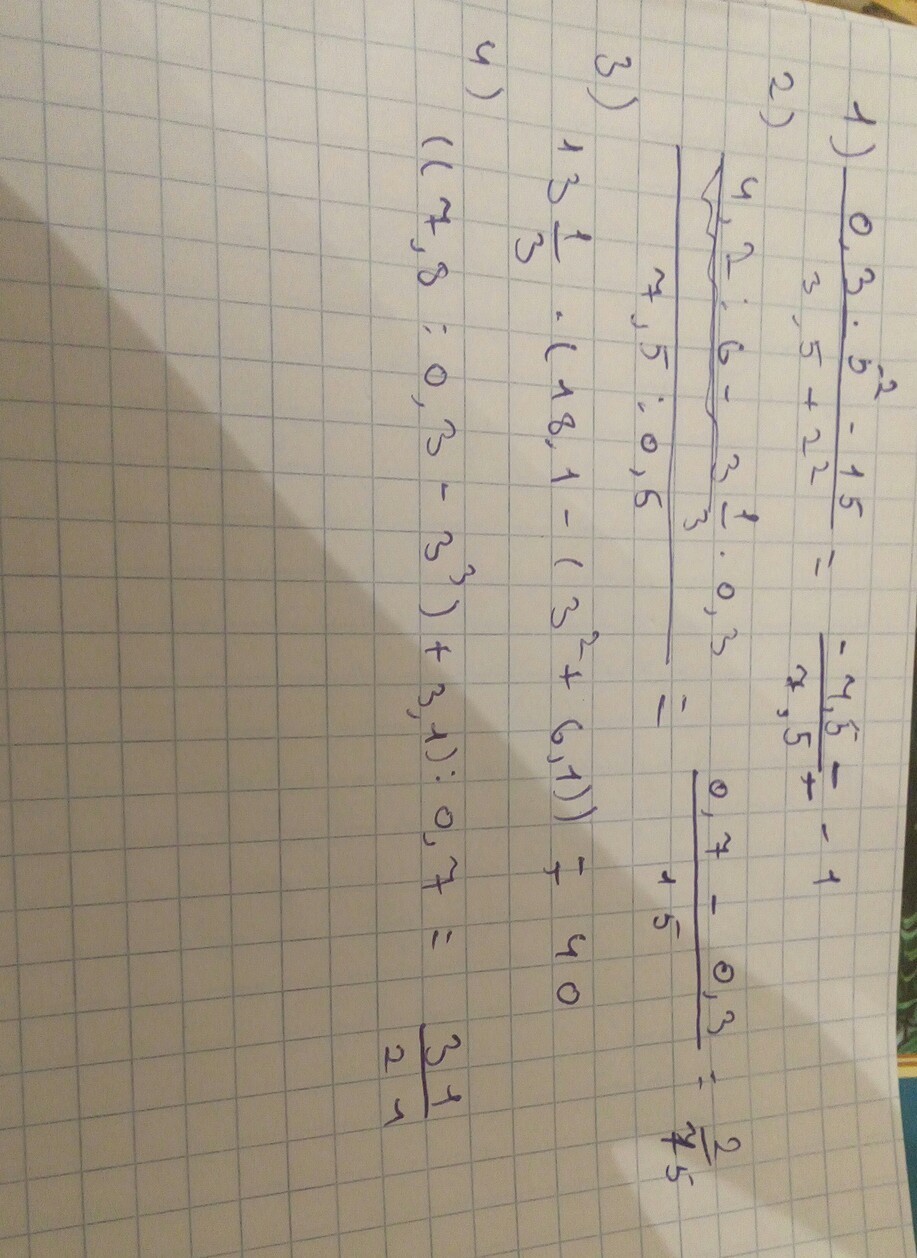 1) 0,3 · 5⁻² - 15 / 3,5 + 2² = -7,5 / 7,5 = -1
2) 4,2 : 6 - 3 1/3 · 0,3 / 7,5 : 0,5 = 0,7 - 0,3 / 15 = 2/75
3) 13 1/3 · (18,1 - (3² + 6,1)) = 40
4) ((7,8 : 0,3 - 3³) + 3,1) : 0,7 = 31/21